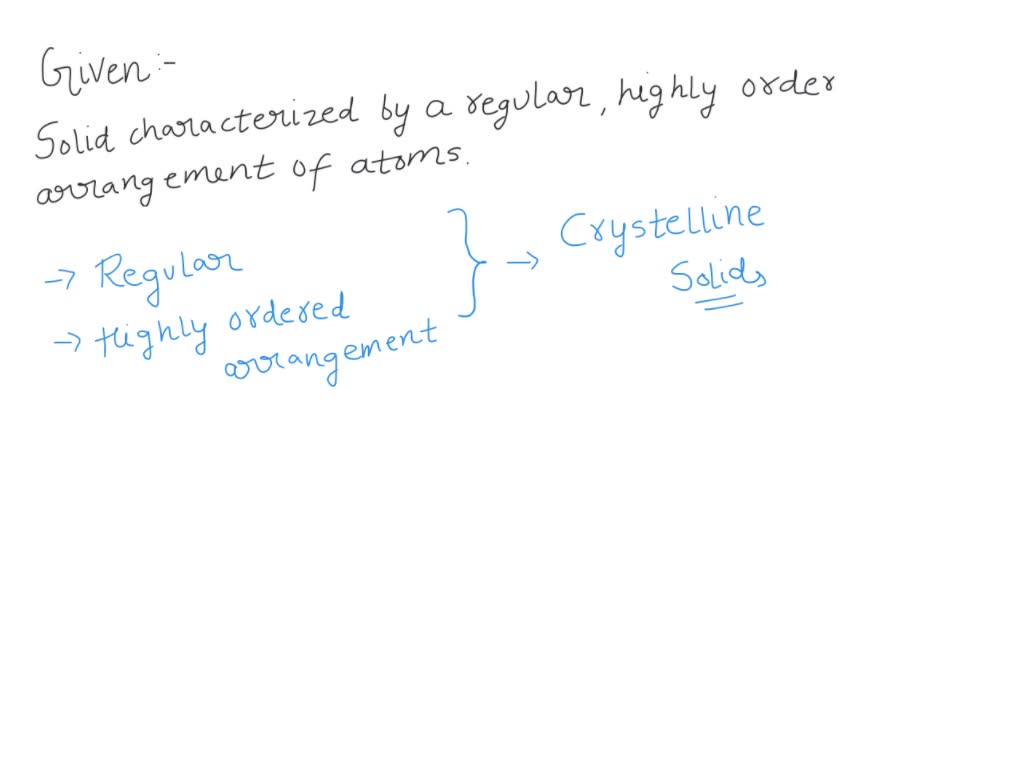 Given:-
Solid characterized by a regular, highly order
arrangement of atoms.
→ Regular
→ Highly ordered
arrangement
} → Crystelline
Solids